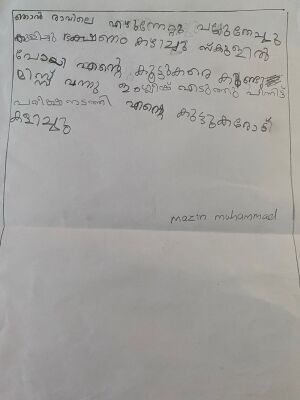 ഞാൻ രാവിലെ എഴുന്നേറ്റു പല്ലുതേച്ചു
കുളിച്ചു ഭക്ഷണം കഴിച്ചു സ്കൂളിൽ
പോയി എന്റെ കൂട്ടുകാരെ കണ്ടു
മിസ്സ് വന്നു ഇംഗ്ലീഷ് എടുത്തു പിന്നീട്
എന്റെ കൂട്ടുകാരോട്
കളിച്ചു
mazin muhammad